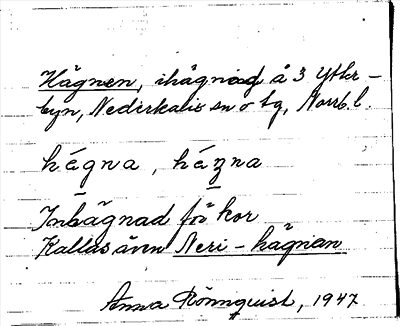 Hägnen, ihägnad å 3 Ytter-
byn, Nederkalix sn o tg, Norrb. l.
hégna, hézna
Inhägnad för kor
Kallas även Neri-hägnan
Anna Rönnquist, 1947